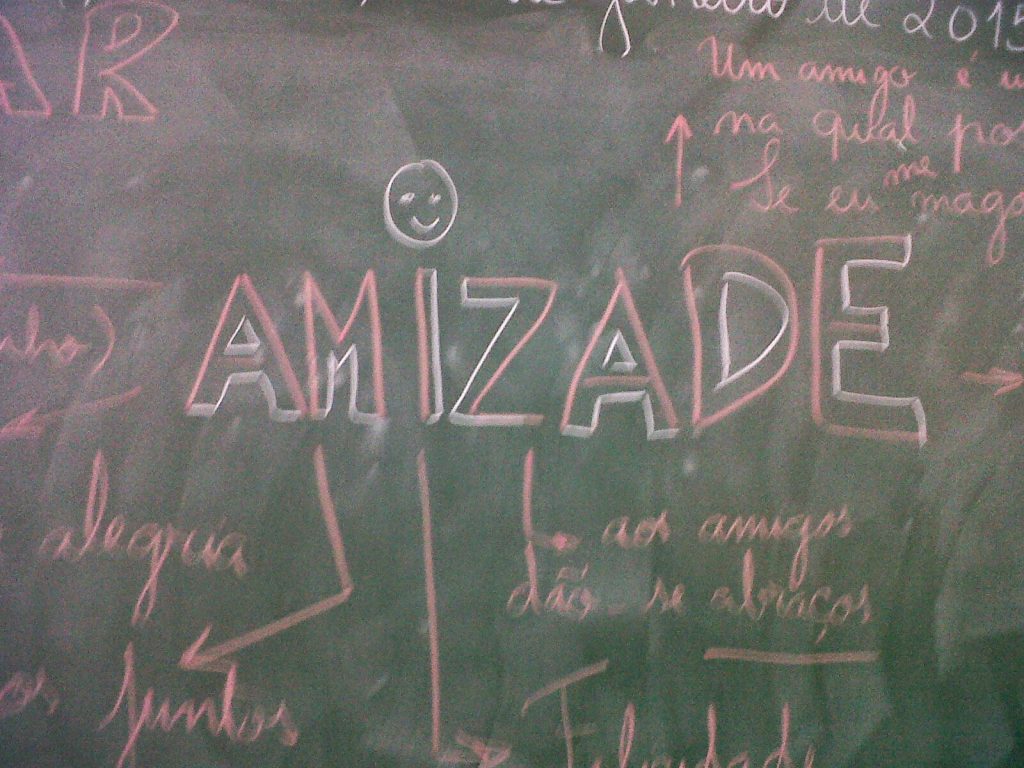 de janeiro de 2015
AR
Um amigo é u
na qual pos
me
Se eu mago
AMIZADE
nho)
alegria
aos amigos
dão-se abraços
os juntos
Felicidade